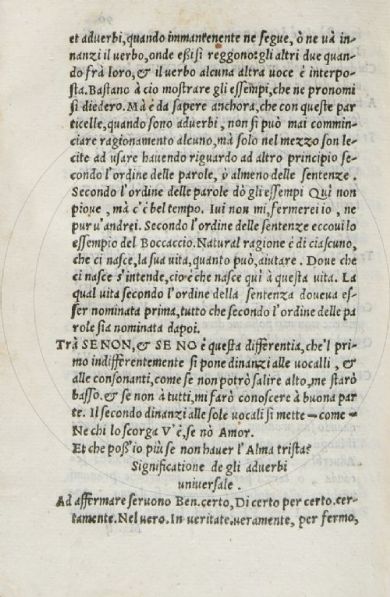 et aduerbi,quando immantenente ne segue, ò ne và in-
nanzi il uerbo,onde eßi si reggono:gli altri due quan-
do frà loro,& il uerbo alcuna altra uoce è interpo-
sta.Bastano à cio mostrare gli essempi,che ne pronomi
si diedero. Mà è da sapere anchora,che con queste par
ticelle,quando sono aduerbi, non si può mai commin-
ciare ragionamento alcuno,mà solo nel mezzo son le-
cite ad usare hauendo riguardo ad altro principio se-
condo l'ordine delle parole, ò almeno delle sentenze.
Secondo l'ordine delle parole dò gli essempi Quì non
pioue, mà c'è bel tempo. Iui non mi,fermerei io, ne
pur u'andrei. Secondo l'ordine delle sentenze eccoui lo
essempio del Boccaccio.Natural ragione è di ciascuno,
che ci nasce,la sua uita, quanto può,aiutare. Doue che
ci nasce s'intende,cio è che nasce quì à questa uita. La
qual uita secondo l'ordine della sentenza doueua es-
ser nominata prima,tutto che secondo l'ordine delle pa
role sia nominata dapoi.
Trà SE NON, & SE NO è questa differentia,che'l pri
mo indifferentemente si pone dinanzi alle uocalli, &
alle consonanti,come se non potrò salire alto,me starò
basso.& se non à tutti,mi farò conoscere à buona par
te. Il secondo dinanzi alle sole uocali si mette — come —
Ne chi lo scorga V'è,se nò Amor.
Et che poss'io più se non hauer l'Alma trista?
Significatione de gli aduerbi
uniuersale .
Ad affermare seruono Ben.certo, Di certo per certo.cer-
tamente. Nel uero. In ueritate.ueramente, per fermo,